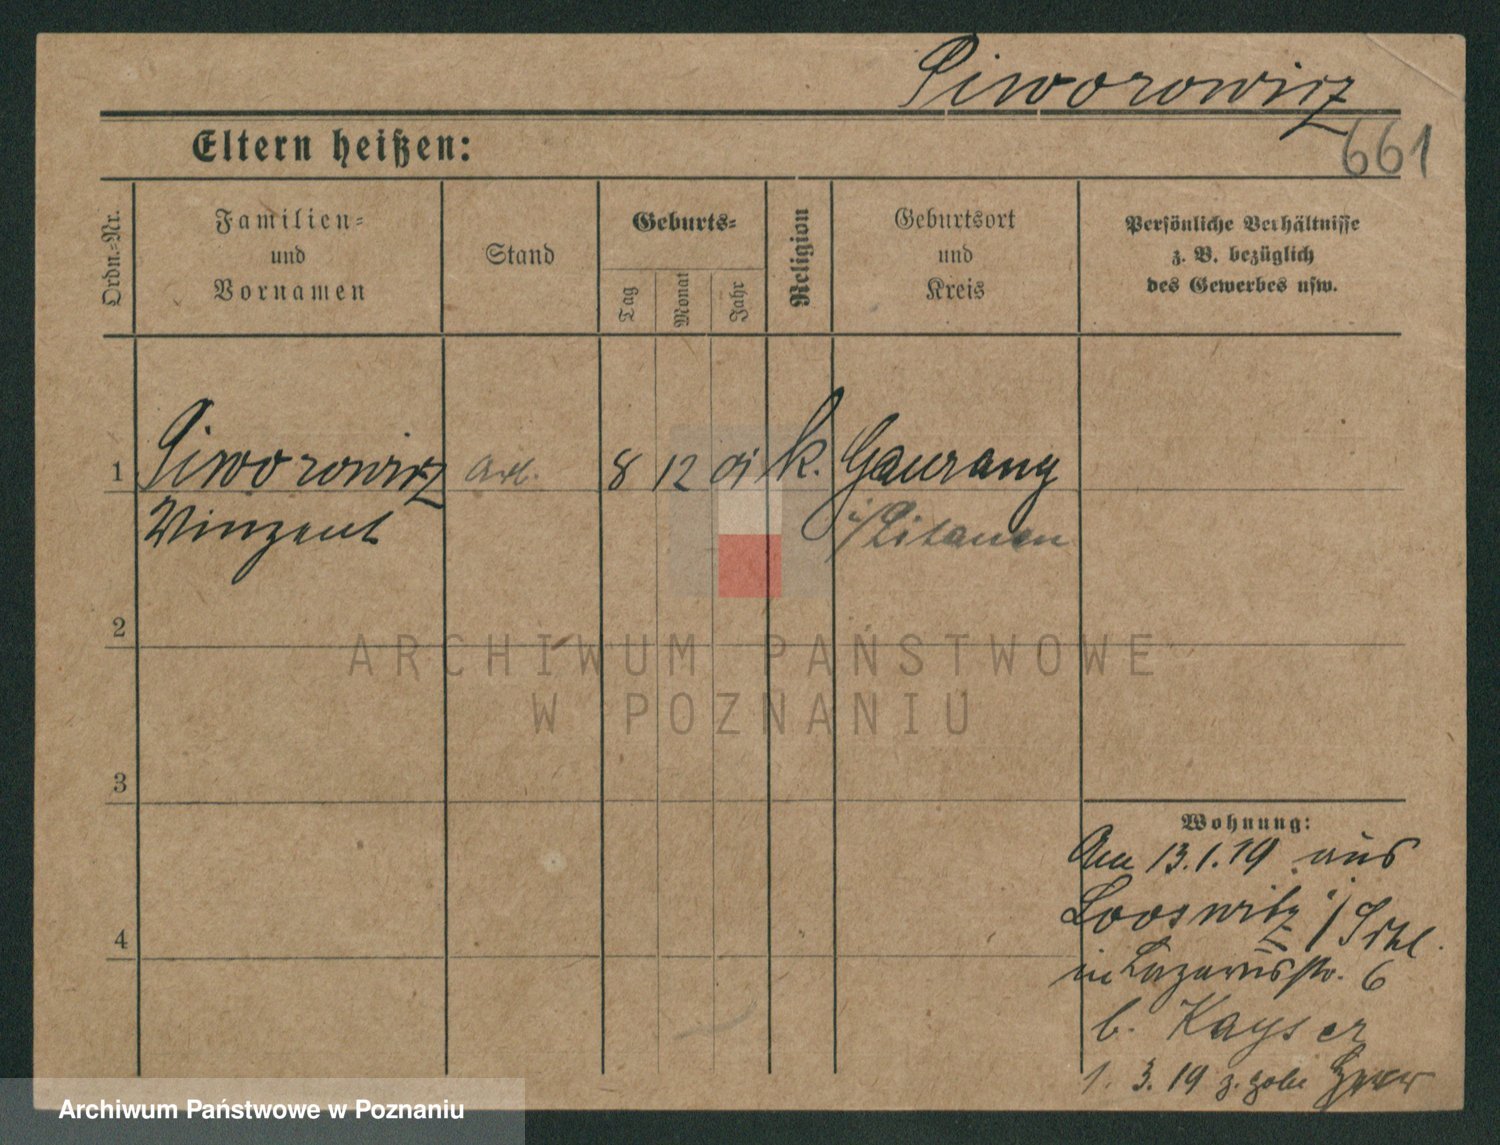 Siworowicz
661
Eltern heißen:
Ordn.-Nr.
Familien-
und
Vornamen
Stand
Geburts-
Tag
Monat
Jahr
Religion
Geburtsort
und
Kreis
Persönliche Verhältnisse
z. B. bezüglich
des Gewerbes usw.
1
Siworowicz
Arb.
8
12
01
k.
Gaurang
Vinzent
i/Litauen
2
3
4
Wohnung:
Am 13.1.19 aus
Looswitz i/Schl.
in Lazarusstr. 6
b. Kayser
1. 3. 19 z.
ARCHIWUM PAŃSTWOWE
W POZNANIU
Archiwum Państwowe w Poznaniu